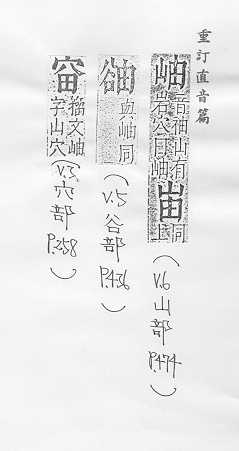 重訂直音篇
岫音袖山有岩穴曰岫峀同上（V.6山部P.474）
與岫同（V.5谷部P.436）
籀文岫字山穴（V.3穴部P.258）